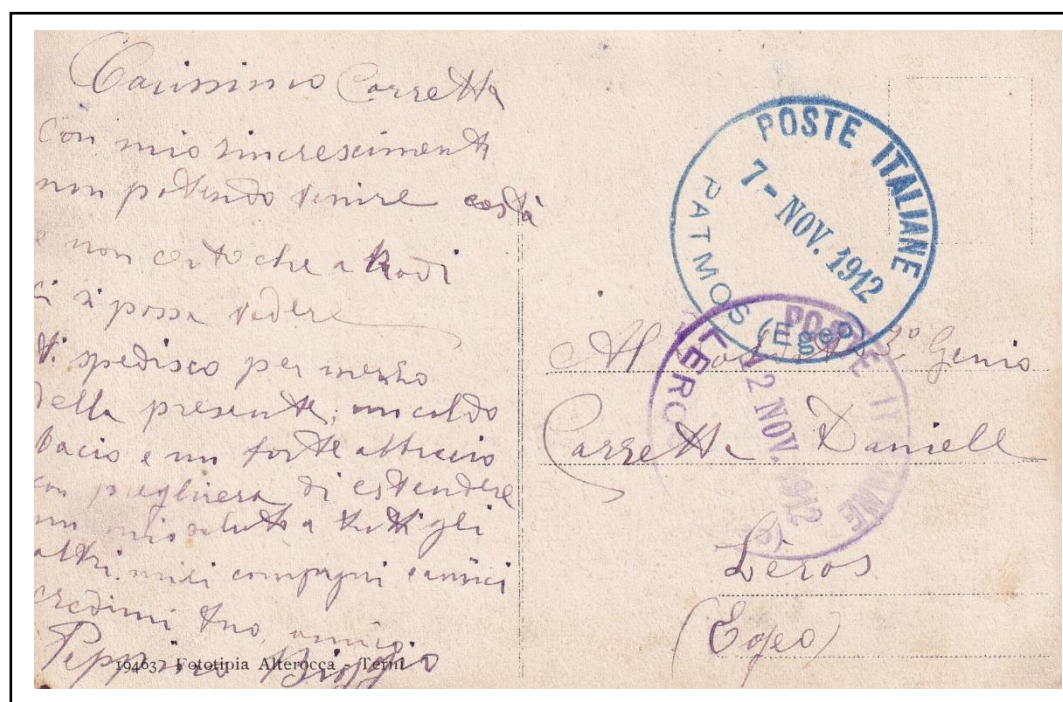 Carissimo Carretta
con mio rincrescimento
non potendo venire costà
e non certo che a Rodi
ci si possa vedere
ti spedisco per mezzo
della presente, un caldo
bacio e un forte abbraccio
con preghiera di estendere
un mio saluto a tutti gli
altri miei compagni e amici
credimi tuo amico
Peppino
19463 - Fototipia Alterocca - Terni
POSTE ITALIANE
7 - NOV. 1912
PATMOS (Egeo)
POSTE ITALIANE
12 NOV. 1912
LEROS
Al 2° Genio
Carretta Daniele
Leros
(Egeo)